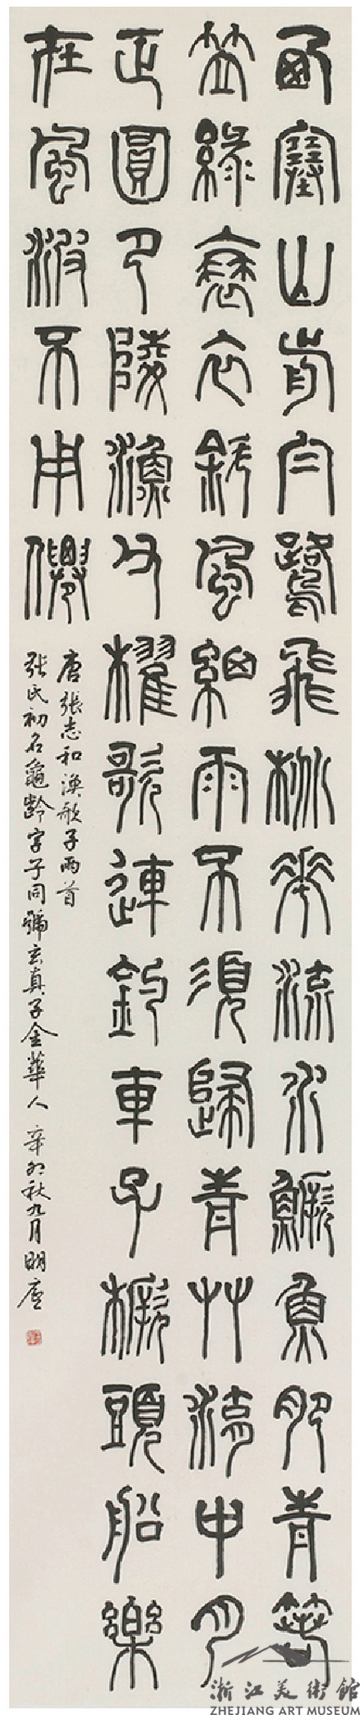 西塞山前白鷺飛桃花流水鱖魚肥青箬
笠綠蓑衣斜風細雨不須歸青草湖中月
正圓巴陵漁父櫂歌連釣車子橛頭船樂
在風波不用僊
唐張志和漁歌子兩首
張氏初名龜齡字子同號玄真子金華人 辛卯秋九月明
浙江美術館
ZHEJIANG ART MUSEUM